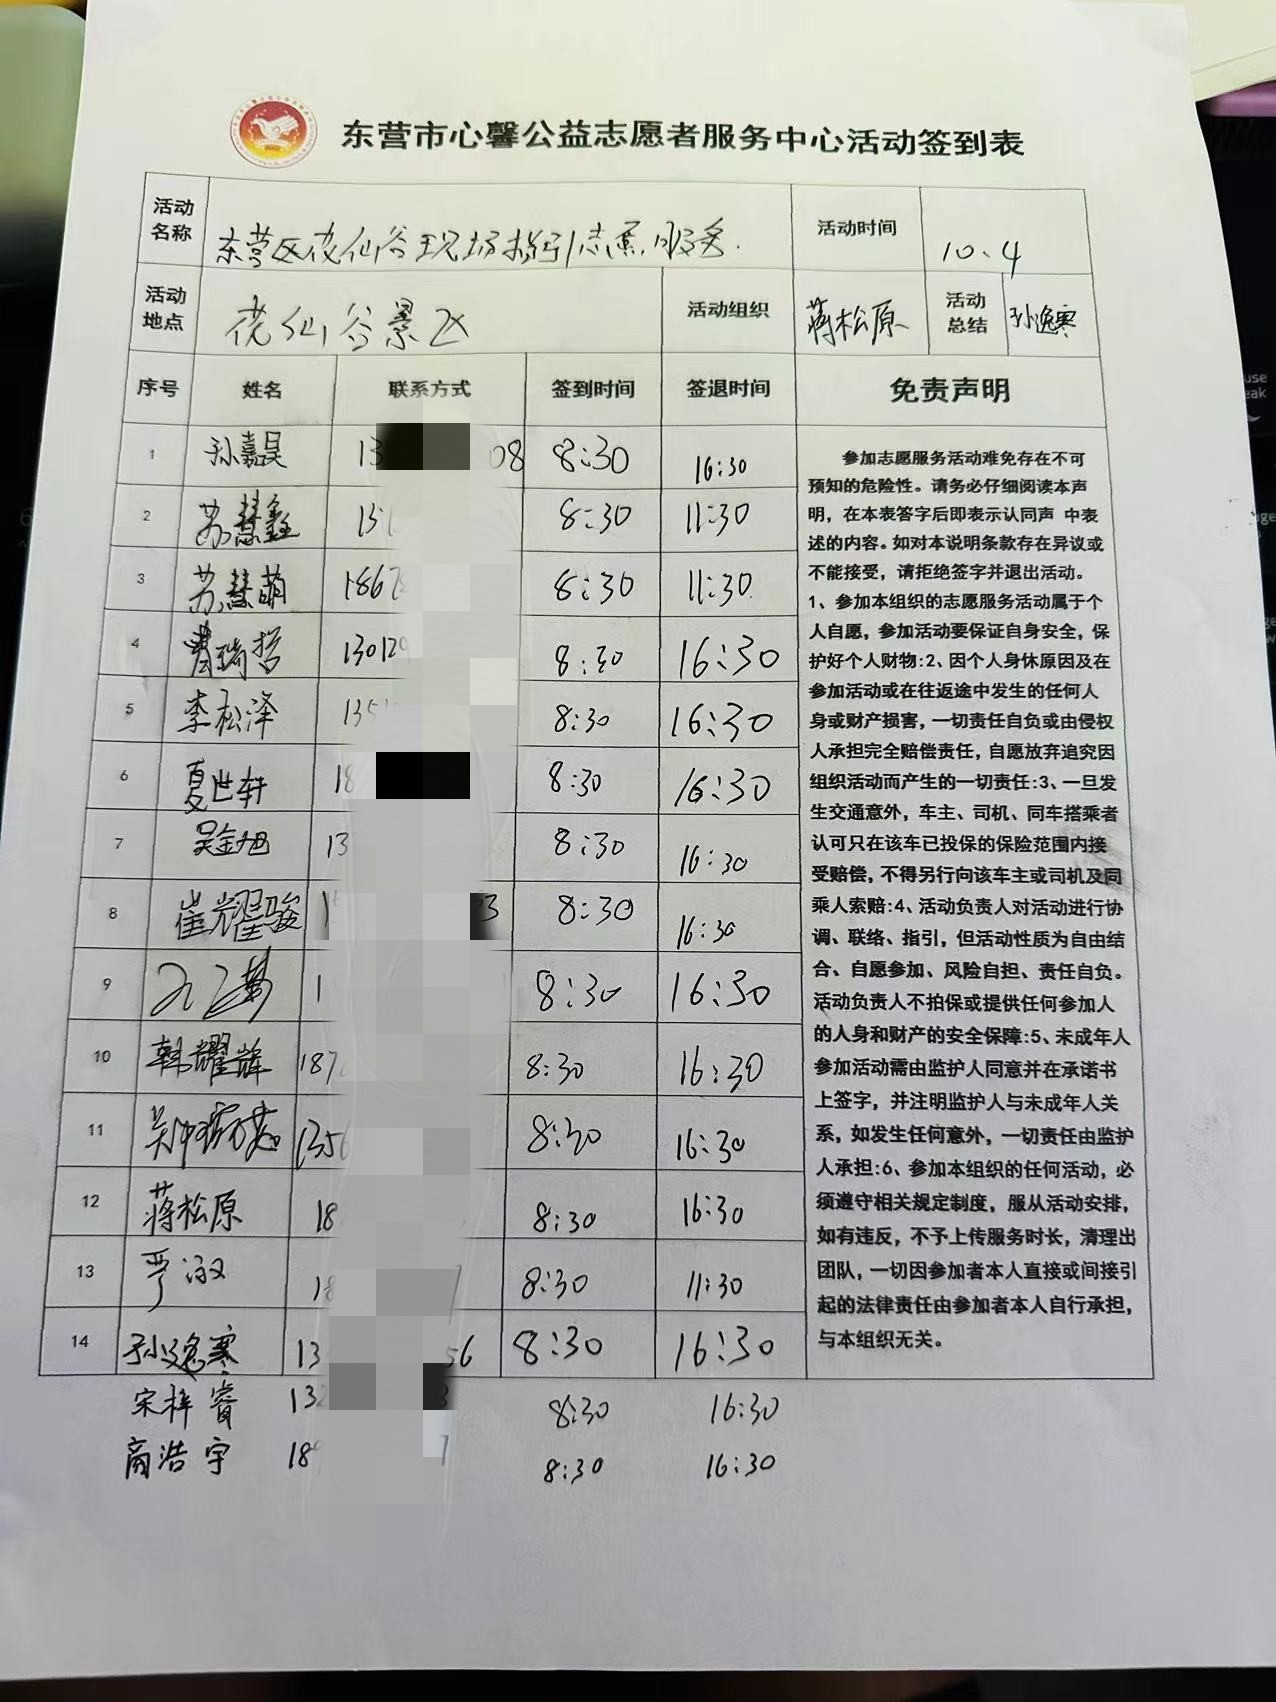 东营市心馨公益志愿者服务中心活动签到表
活动名称 东营区花仙谷现场指引志愿服务. 活动时间 10.4
活动地点 花仙谷景区 活动组织 蒋松原 活动总结 孙逸寒
序号 姓名 联系方式 签到时间 签退时间 免责声明
1 孙嘉昊 13 08 8:30 16:30
2 苏慧鑫 8:30 11:30
3 苏慧萌 1867 8:30 11:30
4 曹瑞哲 13012 8:30 16:30
5 李松泽 135 8:30 16:30
6 夏世轩 18 8:30 16:30
7 吴金旭 13 8:30 16:30
8 崔耀骏 8:30 16:30
9 1 8:30 16:30
10 韩耀辉 187 8:30 16:30
11 1356 8:30 16:30
12 蒋松原 18 8:30 16:30
13 18 8:30 11:30
14 孙逸寒 13 56 8:30 16:30
宋梓睿 13 8:30 16:30
商浩宇 18 8:30 16:30
参加志愿服务活动难免存在不可
预知的危险性。请务必仔细阅读本声
明，在本表答字后即表示认同声 中表
述的内容。如对本说明条款存在异议或
不能接受，请拒绝签字并退出活动。
1、参加本组织的志愿服务活动属于个
人自愿，参加活动要保证自身安全，保
护好个人财物:2、因个人身休原因及在
参加活动或在往返途中发生的任何人
身或财产损害，一切责任自负或由侵权
人承担完全赔偿责任，自愿放弃追究因
组织活动而产生的一切责任:3、一旦发
生交通意外，车主、司机、同车搭乘者
认可只在该车已投保的保险范围内接
受赔偿，不得另行向该车主或司机及同
乘人索赔:4、活动负责人对活动进行协
调、联络、指引，但活动性质为自由结
合、自愿参加、风险自担、责任自负。
活动负责人不拍保或提供任何参加人
的人身和财产的安全保障:5、未成年人
参加活动需由监护人同意并在承诺书
上签字，并注明监护人与未成年人关
系，如发生任何意外，一切责任由监护
人承担:6、参加本组织的任何活动，必
须遵守相关规定制度，服从活动安排，
如有违反，不予上传服务时长，清理出
团队，一切因参加者本人直接或间接引
起的法律责任由参加者本人自行承担，
与本组织无关。